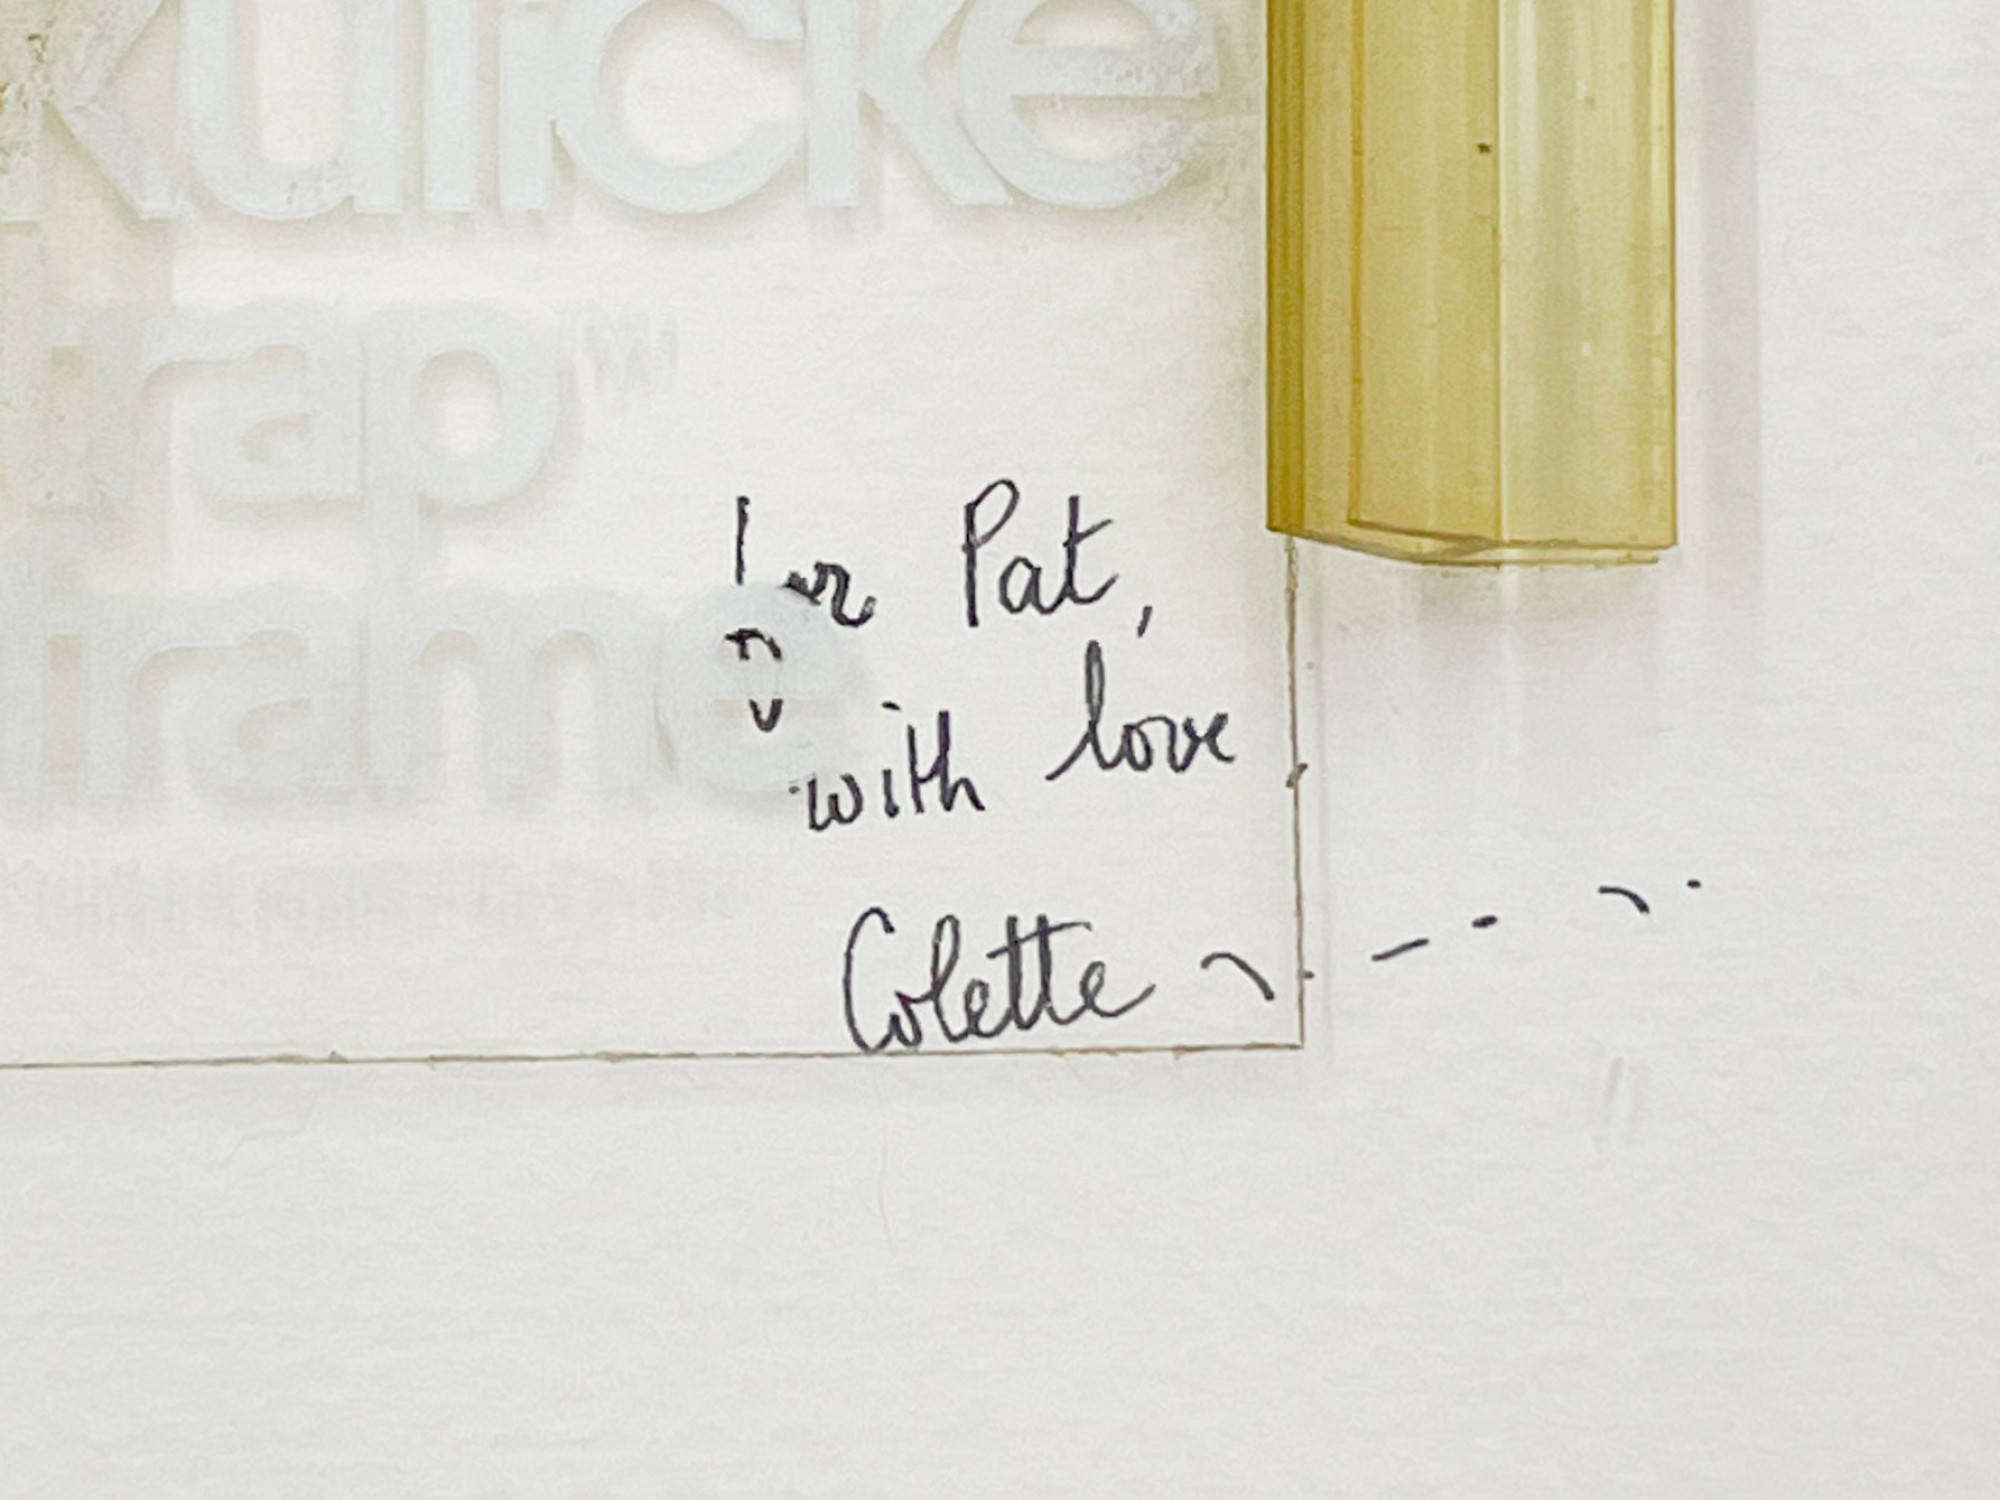 kulicke
rap
frame
for Pat,
with love
Colette